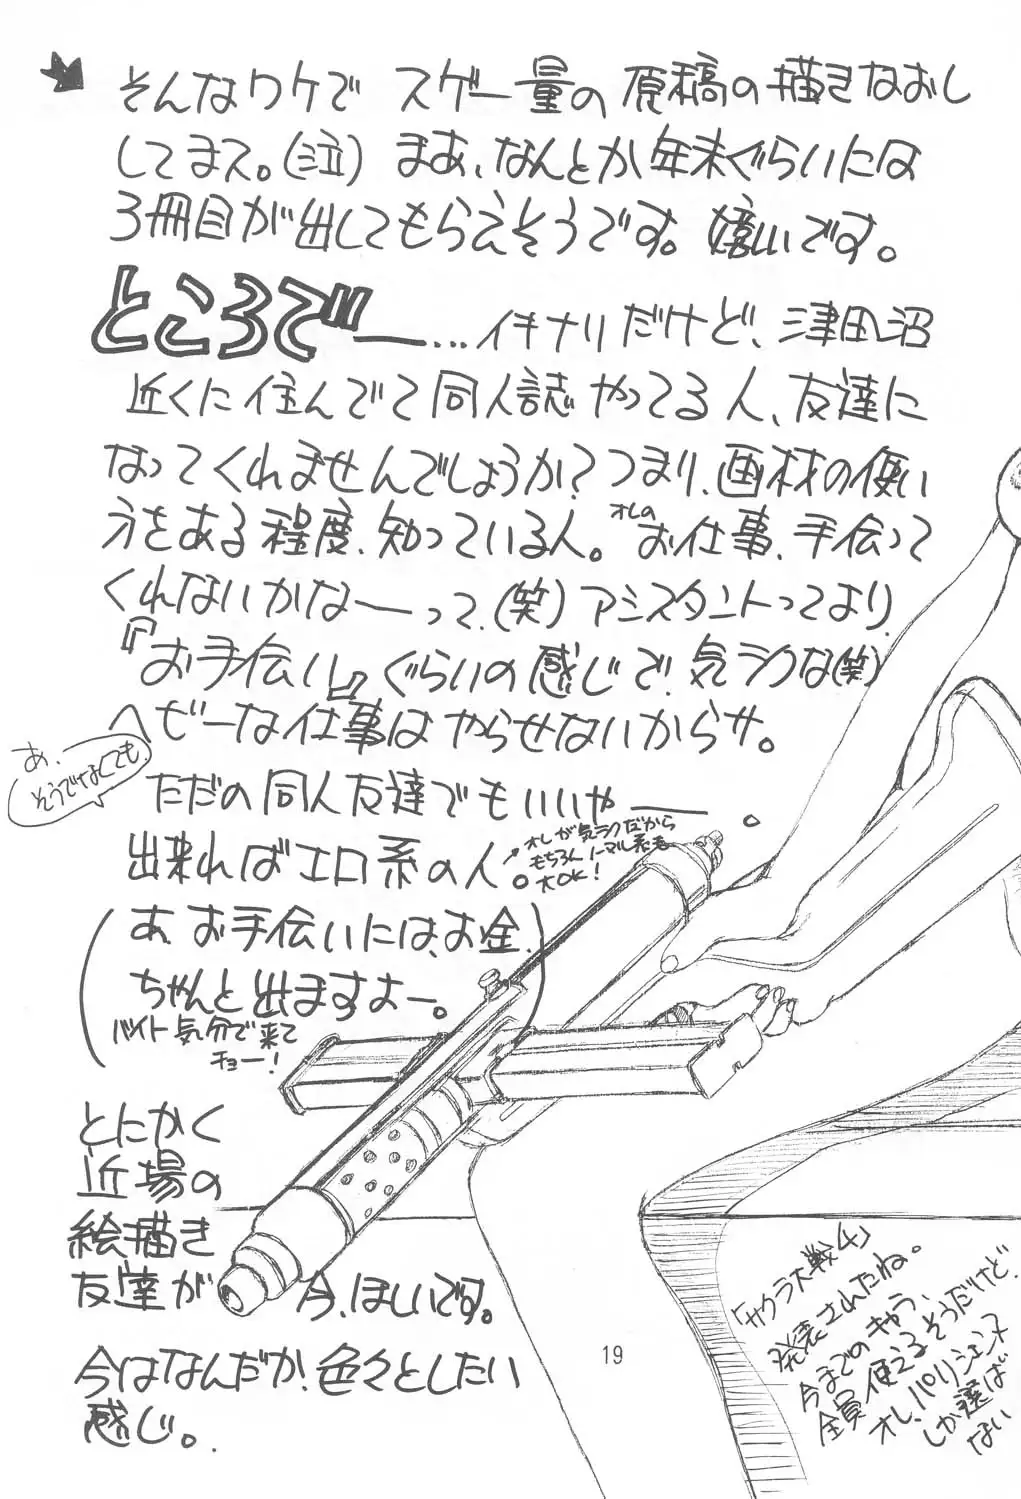 そんなワケで スゲー量の原稿の描きなおし
してまス。(泣) まあ、なんとか年末ぐらいには
3冊目が出してもらえそうです。嬉しいです。
ところでー...イキナリだけど、津田沼
近くに住んでて同人誌やってる人、友達に
なってくれませんでしょうか?つまり、画材の使い
方をある程度、知っている人。オレのお仕事、手伝って
くれないかなーーって、(笑) アシスタントってより、
『お手伝い』ぐらいの感じで、気ラクな(笑)
ヘビーな仕事はやらせないからサ。
あ、
そうでなくても、
ただの同人友達でもいいやー。
出来ればエロ系の人。
→オレが気ラクだから
もちろんノーマル系も
大OK!
(あ、お手伝いには、お金、
ちゃんと出ますよー。
バイト気分で来て
チョー!)
とにかく
近場の
絵描き
友達が 今、ほしいです。
今はなんだか、色々としたい
感じ。
「サクラ大戦4」
発表されたね。
今までのキャラ、
全員使えるそうだけど、
オレ、パリジェンヌ
しか選ば
ない
19